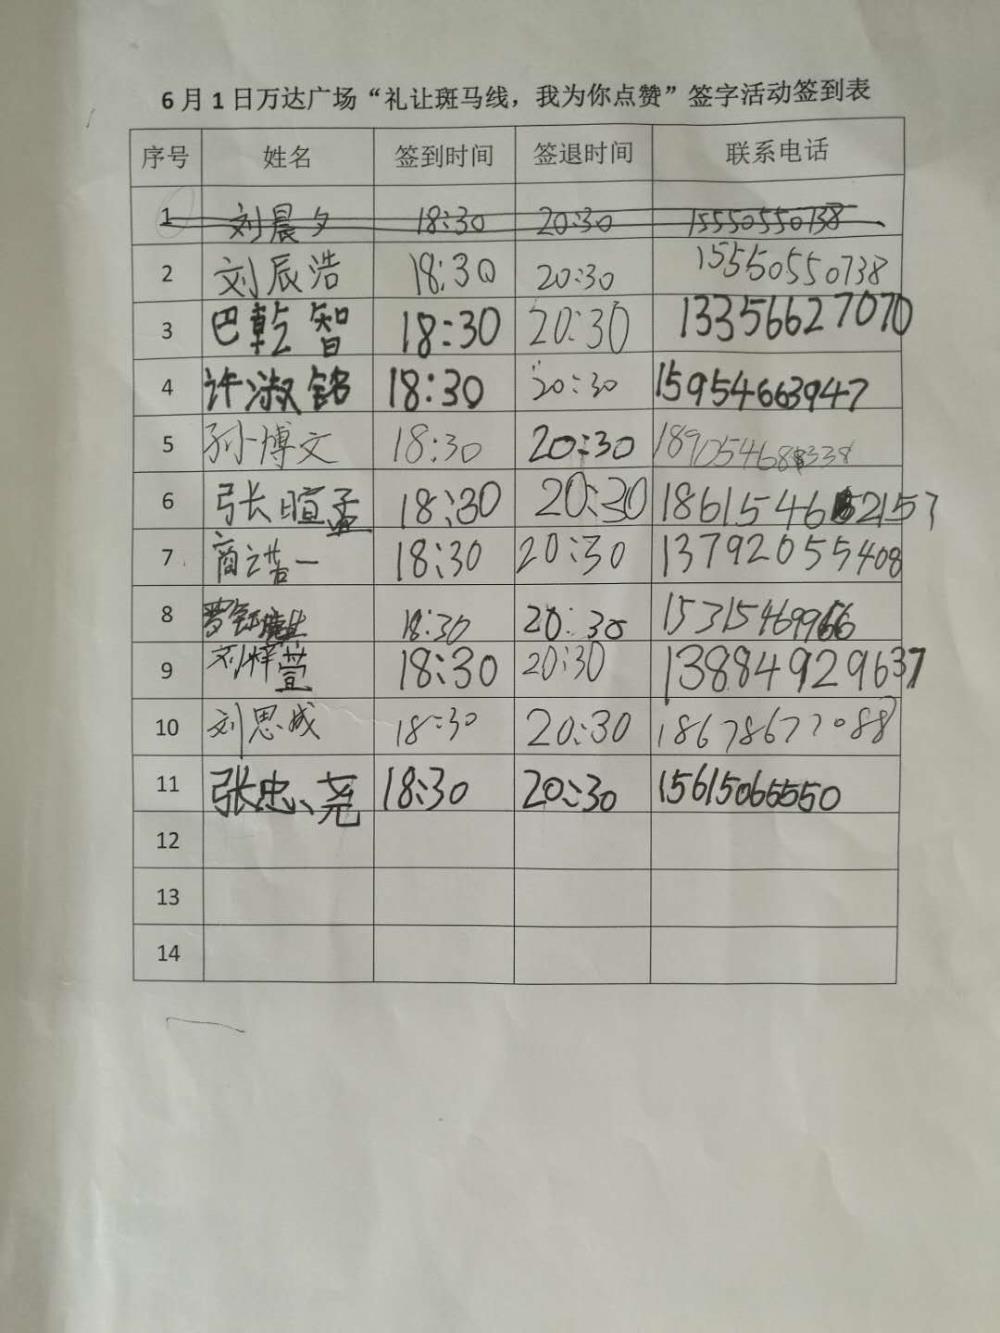 6月1日万达广场“礼让斑马线，我为你点赞”签字活动签到表
序号 姓名 签到时间 签退时间 联系电话
1 刘晨夕 18:30 20:30 15550550738
2 刘辰浩 18:30 20:30 15550550738
3 巴乾智 18:30 20:30 13356627070
4 许淑铭 18:30 20:30 15954663947
5 孙博文 18:30 20:30
6 张暄孟 18:30 20:30
7 商浩一 18:30 20:30 13792055408
8 18:30 20:30 15315469966
9 刘梓萱 18:30 20:30 13884929637
10 刘思成 18:30 20:30 18678677088
11 张忠尧 18:30 20:30 15615065550
12
13
14